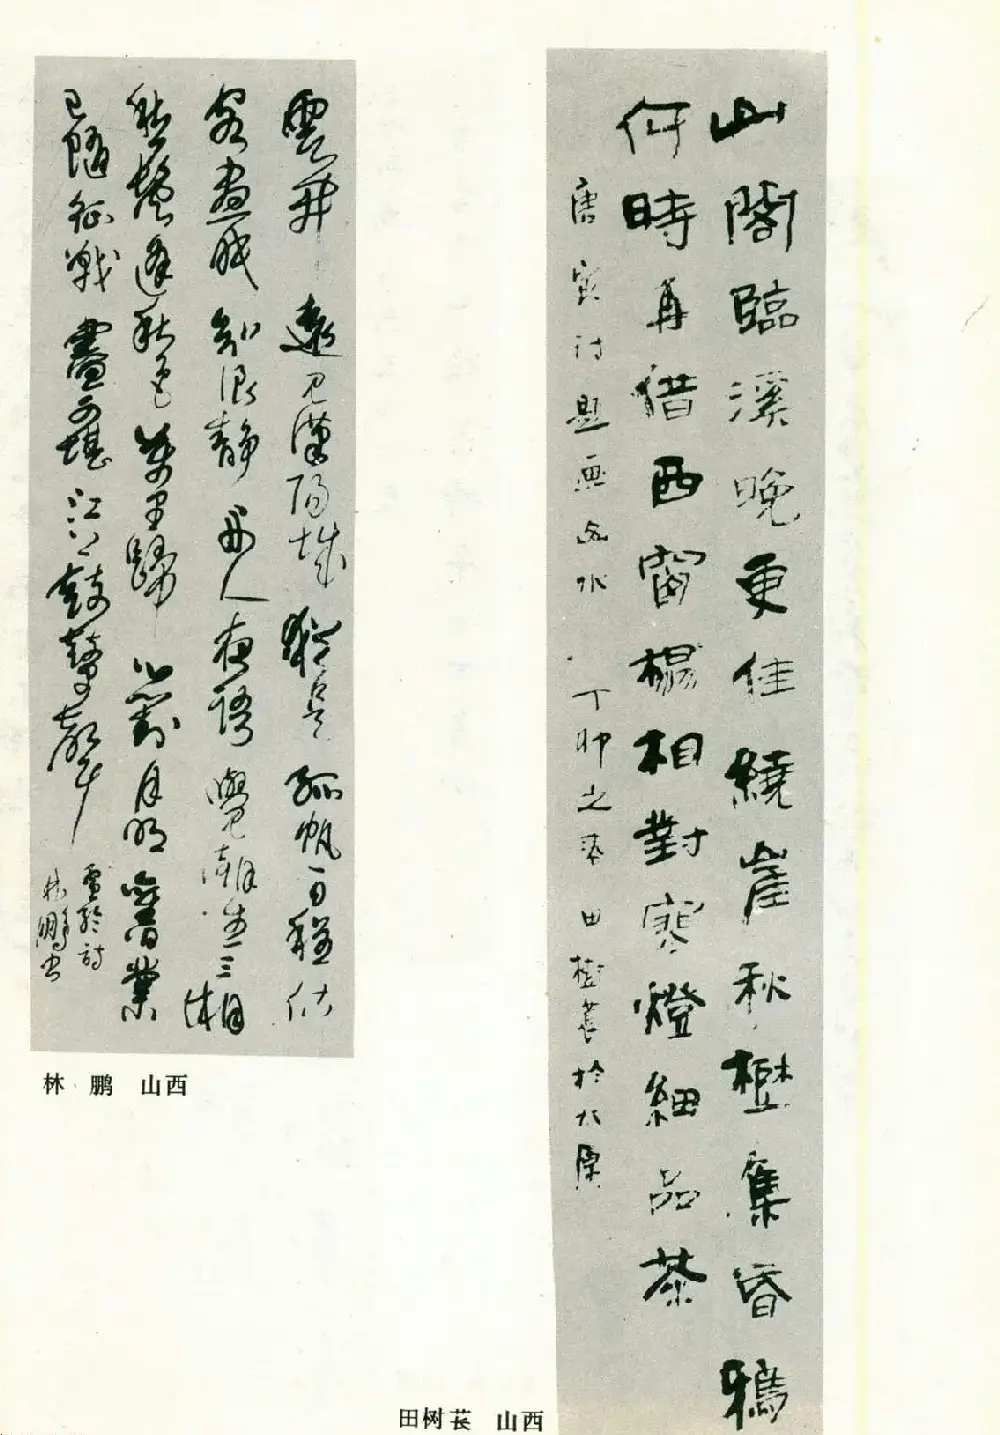 山閣臨溪晚更佳繞崖秋樹集昏鴉
何時再借西窗榻相對寒燈細品茶
唐寅詩題画山水 丁卯之春 田樹萇於太原
田树苌 山西
雲开遠見漢陽城猶是孤帆一日程估
客晝眠知浪静舟人夜語覺潮生三湘
愁鬢逢秋色萬里歸心對月明舊業
已隨征戰盡更堪江上鼓鼙聲
盧綸詩
林鵬書
林 鹏 山西